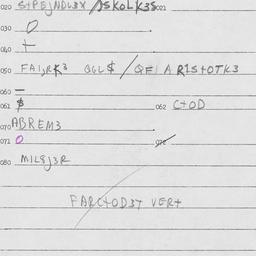 020 S+PEJNDL3X /JSKOLK3S 021
030 O
040 +
050 FAI,RK3 QGL$ / QF| A RIS+OTK3
060 –
061 $ 062 C+OD
070 ABREM3
071 O 072
080 MIL8J3R
FARC+OD3Y VER+